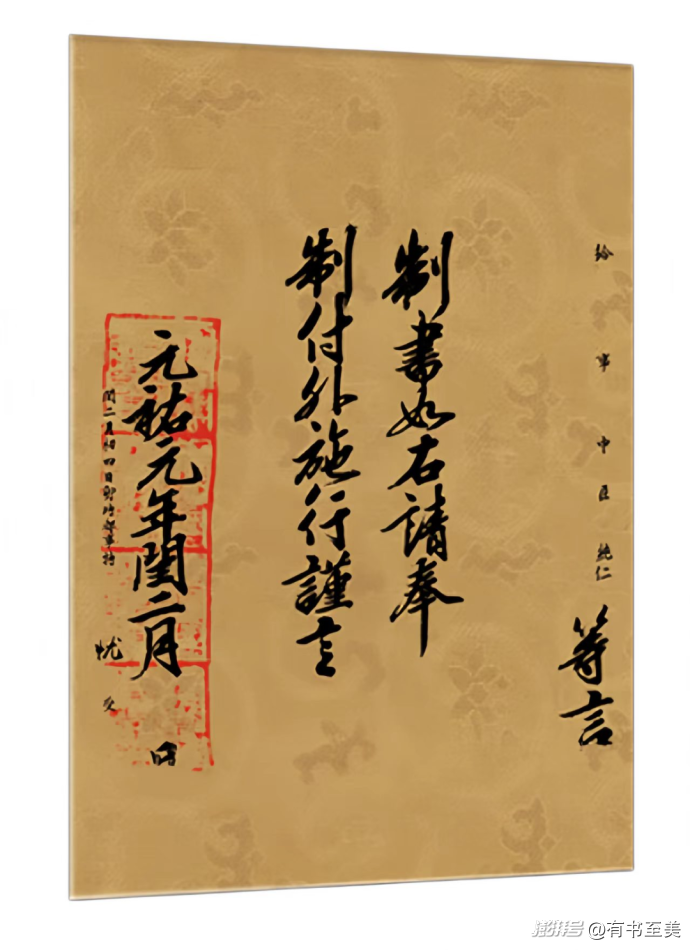 給事中臣純仁
等言
制書如右請奉
制付外施行謹言
元祐元年閏二月 日
閏二月初四日
受
澎湃号 @有书至美